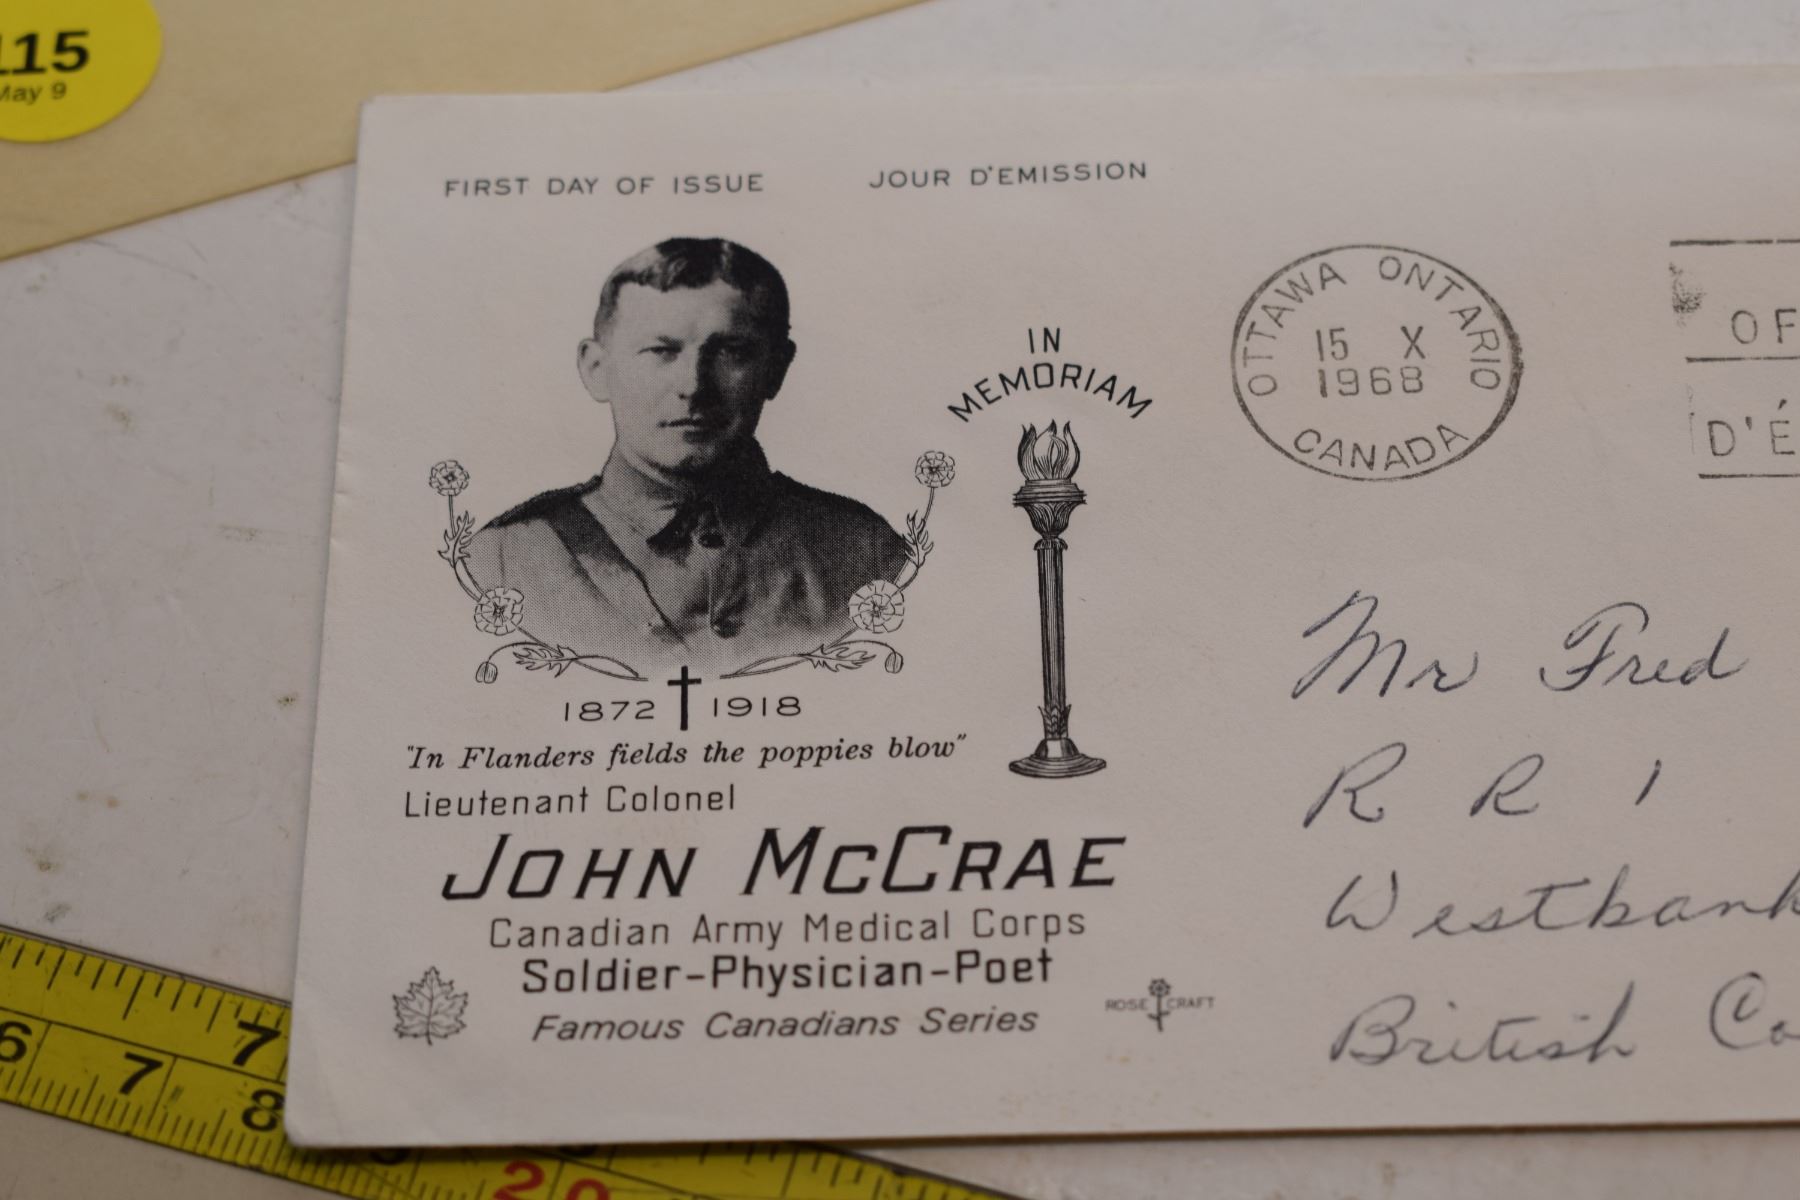 115
May 9
FIRST DAY OF ISSUE JOUR D'EMISSION
IN
MEMORIAM
OTTAWA ONTARIO
15 X
1968
CANADA
OF
D'É
1872 1918
"In Flanders fields the poppies blow"
Lieutenant Colonel
JOHN McCRAE
Canadian Army Medical Corps
Soldier-Physician-Poet
Famous Canadians Series
ROSE CRAFT
Mr Fred
R R 1
Westbank
British Co
6 7 7 8
20